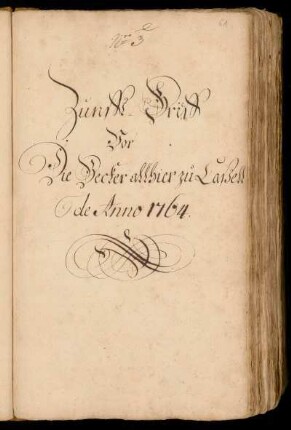 No 3
Zunfft-Brieff
Vor
Die Becker allhier zu Cassell
de Anno 1764.